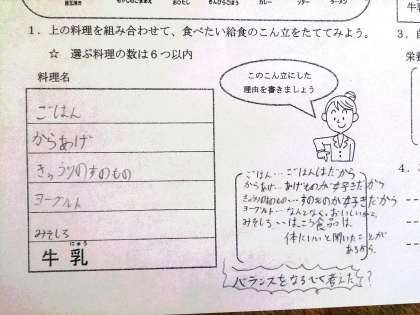 もやしのごまあえ おひたし きんぴらごぼう カレー シチュー ラーメン
1．上の料理を組み合わせて、食べたい給食のこん立をたててみよう。
☆ 選ぶ料理の数は６つ以内
料理名
ごはん
からあげ
きゅうりのすのもの
ヨーグルト
みそしる
牛乳
にゅう
このこん立にした
理由を書きましょう
ごはん…ごはんはだから
からあげ…あげものが好きだから
きゅうりのすのもの…すのものが好きだから
ヨーグルト…なんとなくおいしいから
みそしる…はっこう食品は、
体にいいと聞いたことが
あるから。
バランスをなるべく考えたよ？
牛乳
3．
栄養
4．